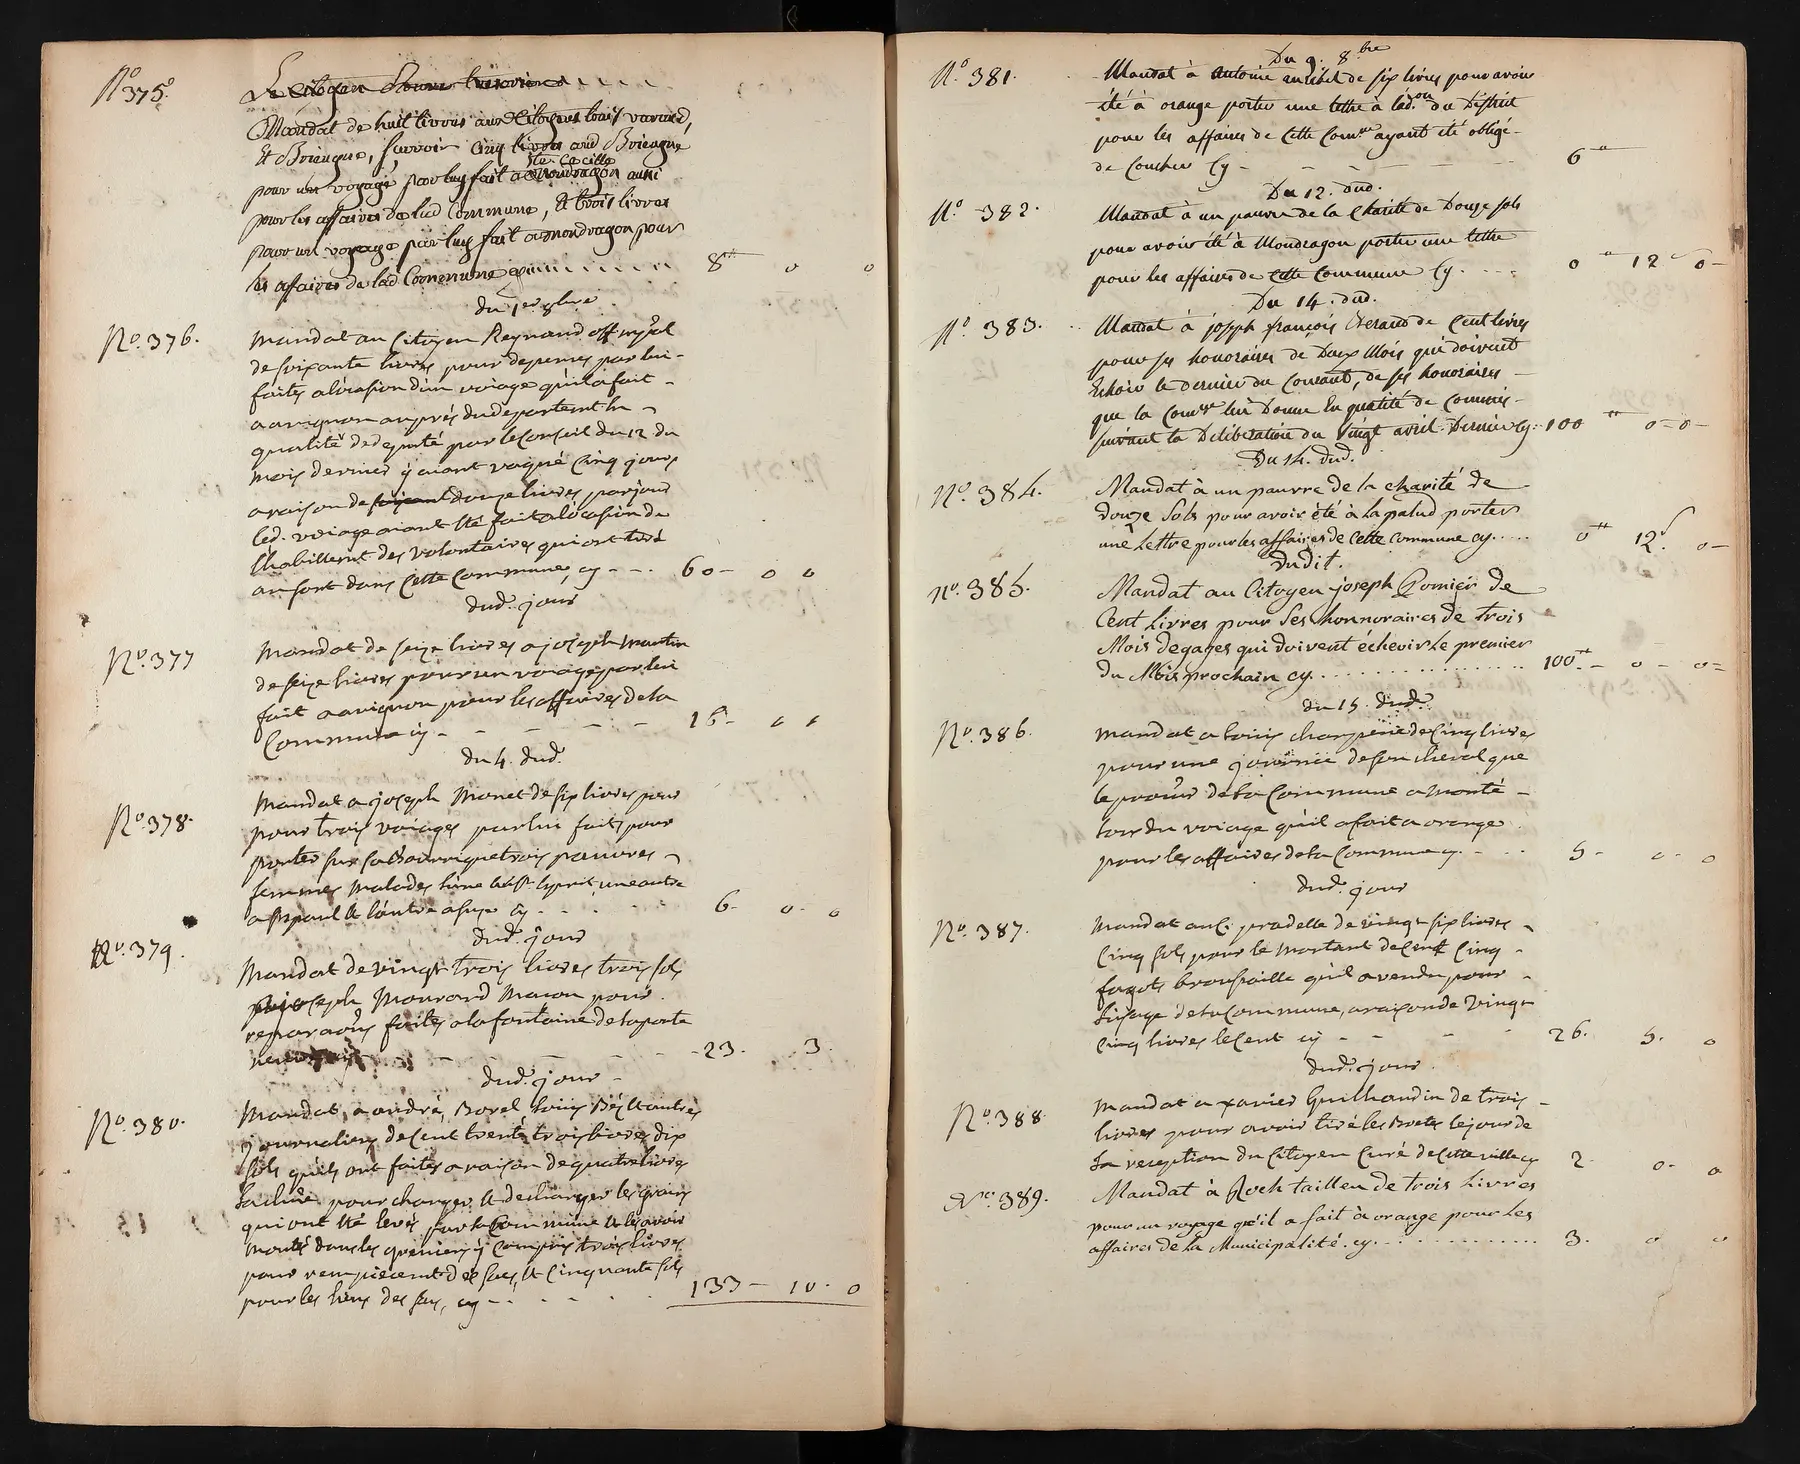 N.º 375.
Le Citoyen
Mandat de huit livres aux Citoyens louis
Et Brieugne, sçavoir Cinq livres aud Brieugne
Ste. Cecille
pour un voyage par luy fait a Mondragon aussi
pour les affaires de lad Commune, & trois livres
pour un voyage par luy fait a mondragon pour
les affaires de lad Commune cy 8 o o
du 1er 8bre
N.º 376.
Mandat au Citoyen Reynaud off mpal
de soixante livres pour depenses par lui
faites a locasion d'un voiage qu'il a fait
a avignon auprès du departemt. En
qualité de deputé par le Conseil du 12 du
mois dernier y aiant vaqué Cinq jours
a raison de douze livres par jour
led. voiage aiant été fait a locasion de
lhabillemt. des volontaires qui ont
dans cette Commune, cy - - . 60 - o o
dud. jour
N.º 377
Mandat de seize livres a joseph Martin
de seize livres pour un voiage par lui
fait a avignon pour les affaires de la
Commune cy - - - - - 16 - o o
du 4. dud.
N.º 378.
Mandat a joseph Monet de six livres pour
pour trois voiages par lui faits pour
porter sur sa Bourrique trois pauvres
femmes malades l'une au St. Esprit, une autre
a St paul & l'autre a suze cy - - - 6 - o - o
dud. jour
N.º 379.
Mandat de vingt trois livres trois sols
a joseph Monrard Macon pour
reparaons faites a la fontaine de la porte
neuve cy - - - - 23. 3.
dud. jour -
N.º 380.
Mandat, a andré, Borel, louis & autres
journaliers de Cent trente trois livres dix
sols qu'ils ont faites a raison de quatre livres
pour charger & decharger les grains
qui ont été levés par la Commune & les avoir
montés dans les greniers y compris trois livres
pour rempiecemt. des sacs, & Cinquante sols
pour les liens des sacs, cy - - . . . 133 - 10 . o
Du 9. 8bre
N.º 381.
Mandat à Antoine de six livres pour avoir
été à orange porter une lettre à l'ad.on du District
pour les affaires de cette Comune ayant été obligé
de Coucher Cy - - - - 6
Du 12. dud.
N.º 382.
Mandat à un pauvre de la Charité de Douze sols
pour avoir été à Mondragon porter une lettre
pour les affaires de cette Commune Cy. - - - o 12 o -
Du 14. dud.
N.º 383.
Mandat à joseph françois de Cent livres
pour ses honoraires de Deux Mois qui doivent
Echoir le dernier du Courant, de ses honoraires
que la Comune lui Donne En qualité de Commis
suivant la Deliberation du vingt avril Dernier Cy. 100 o = o -
Du 14. dud.
N.º 384.
Mandat à un pauvre de la charité de
douze Sols pour avoir été à la palud porter
une Lettre pour les affaires de cette commune cy..... o 12. o -
Dudit.
N.º 385.
Mandat au Citoyen joseph Gomier De
Cent Livres pour Ses honnoraires de trois
Mois de gages qui doivent échevir Le premier
du Mois prochain cy............ 100 - o - o =
du 15. dud.
N.º 386.
Mandat a louis de Cinq livres
pour une journée de son cheval que
le procur de la Commune a monté
lors du voiage qu'il a fait a orange
pour les affaires de la Commune cy. - - . . 5 - o - o
dud. jour
N.º 387.
Mandat au C. pradelle de vingt six livres
Cinq sols pour le montant de Cent Cinq
fagots broussaille qu'il a vendu pour
lusage de la Commune, a raison de vingt
Cinq livres le Cent cy - - - 26. 5. o
dud. jour.
N.º 388
Mandat a xavier Guilhaudin de trois
livres pour avoir tiré les Boetes le jour de
la reception du Citoyen Curé de cette ville cy 2 - o - o
N.º 389.
Mandat à Roch taillen de trois Livres
pour un voyage qu'il a fait à orange pour les
affaires de la Municipalité. cy............ 3. o o